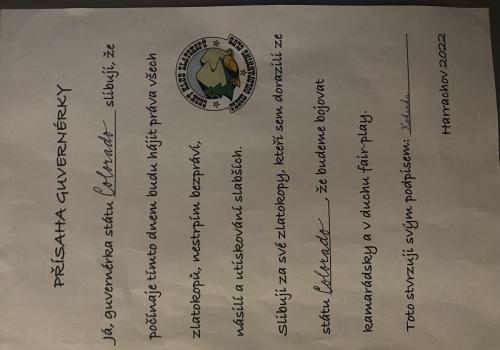 PŘÍSAHA GUVERNÉRKY
Já, guvernérka státu Colorado slibuji, že
počínaje tímto dnem budu hájit práva všech
zlatokopů, nestrpím bezpráví,
násilí a utiskování slabších.
Slibuji za své zlatokopy, kteří sem dorazili ze
státu Colorado, že budeme bojovat
kamarádsky a v duchu fair-play.
Toto stvrzuji svým podpisem:
Harrachov 2022